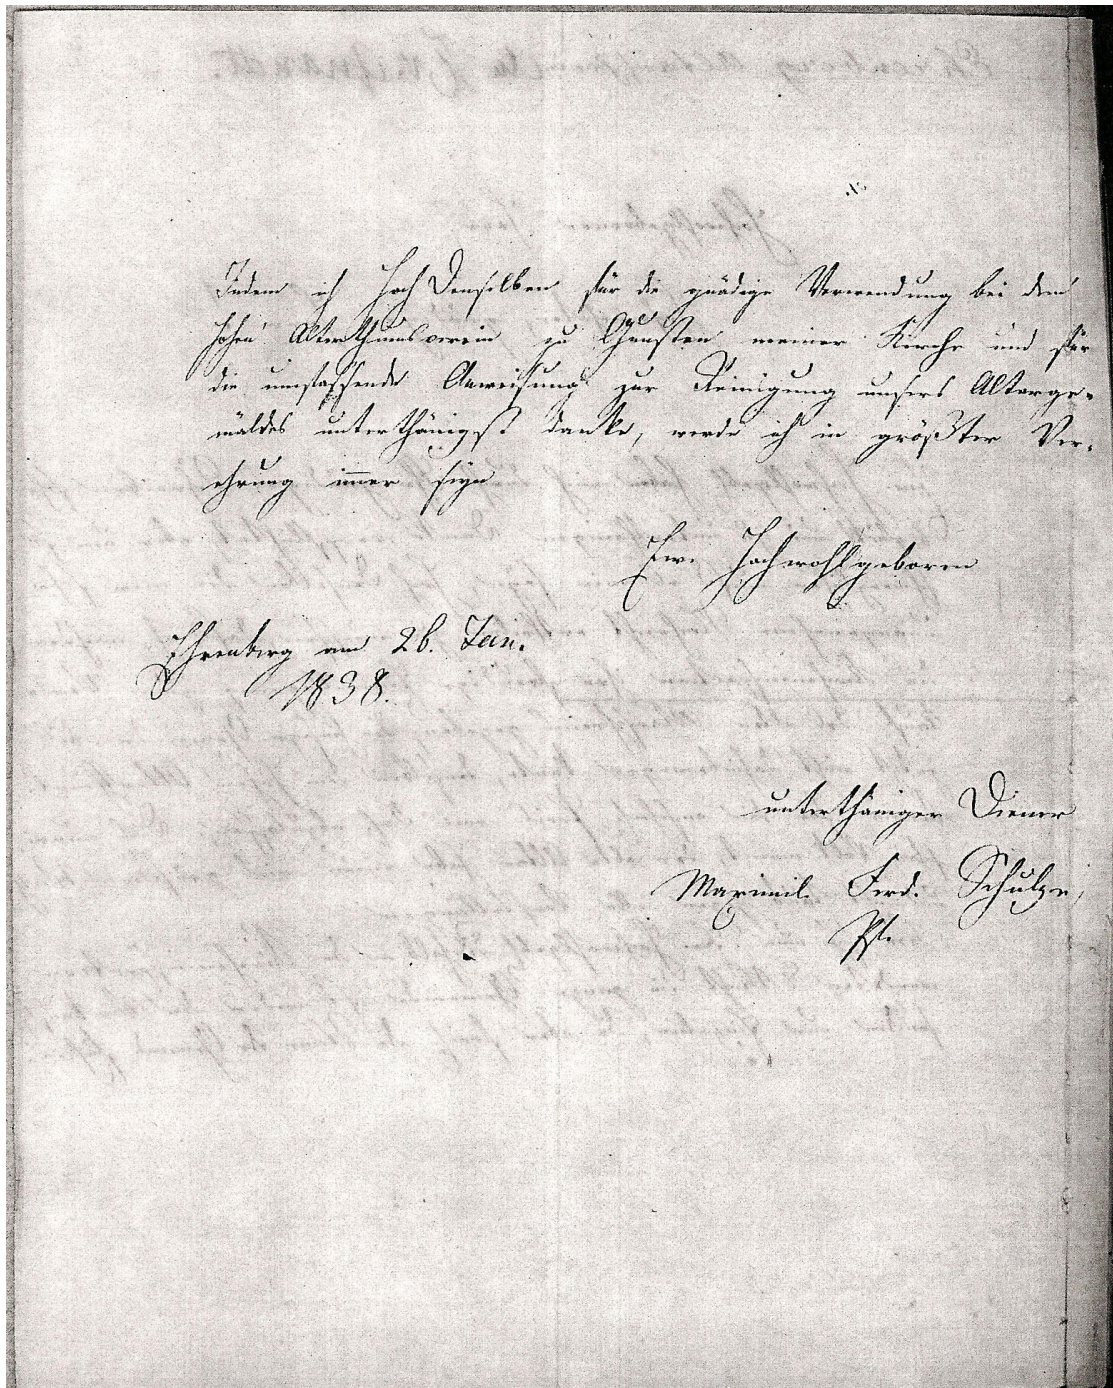 Indem ich Hoch Denselben für die gnädige Verwendung bei dem
hohen Alterthumsverein zu Gunsten meiner Kirche und für
die umfassende Anweisung zur Reinigung unsers Altarge-
mäldes unterthänigst danke, werde ich in größter Ver-
ehrung immer seyn
Ew. Hochwohlgeboren
Ehrenberg am 26. Jan.
1838.
unterthäniger Diener
Maximil. Ferd. Schulze,
Pf.